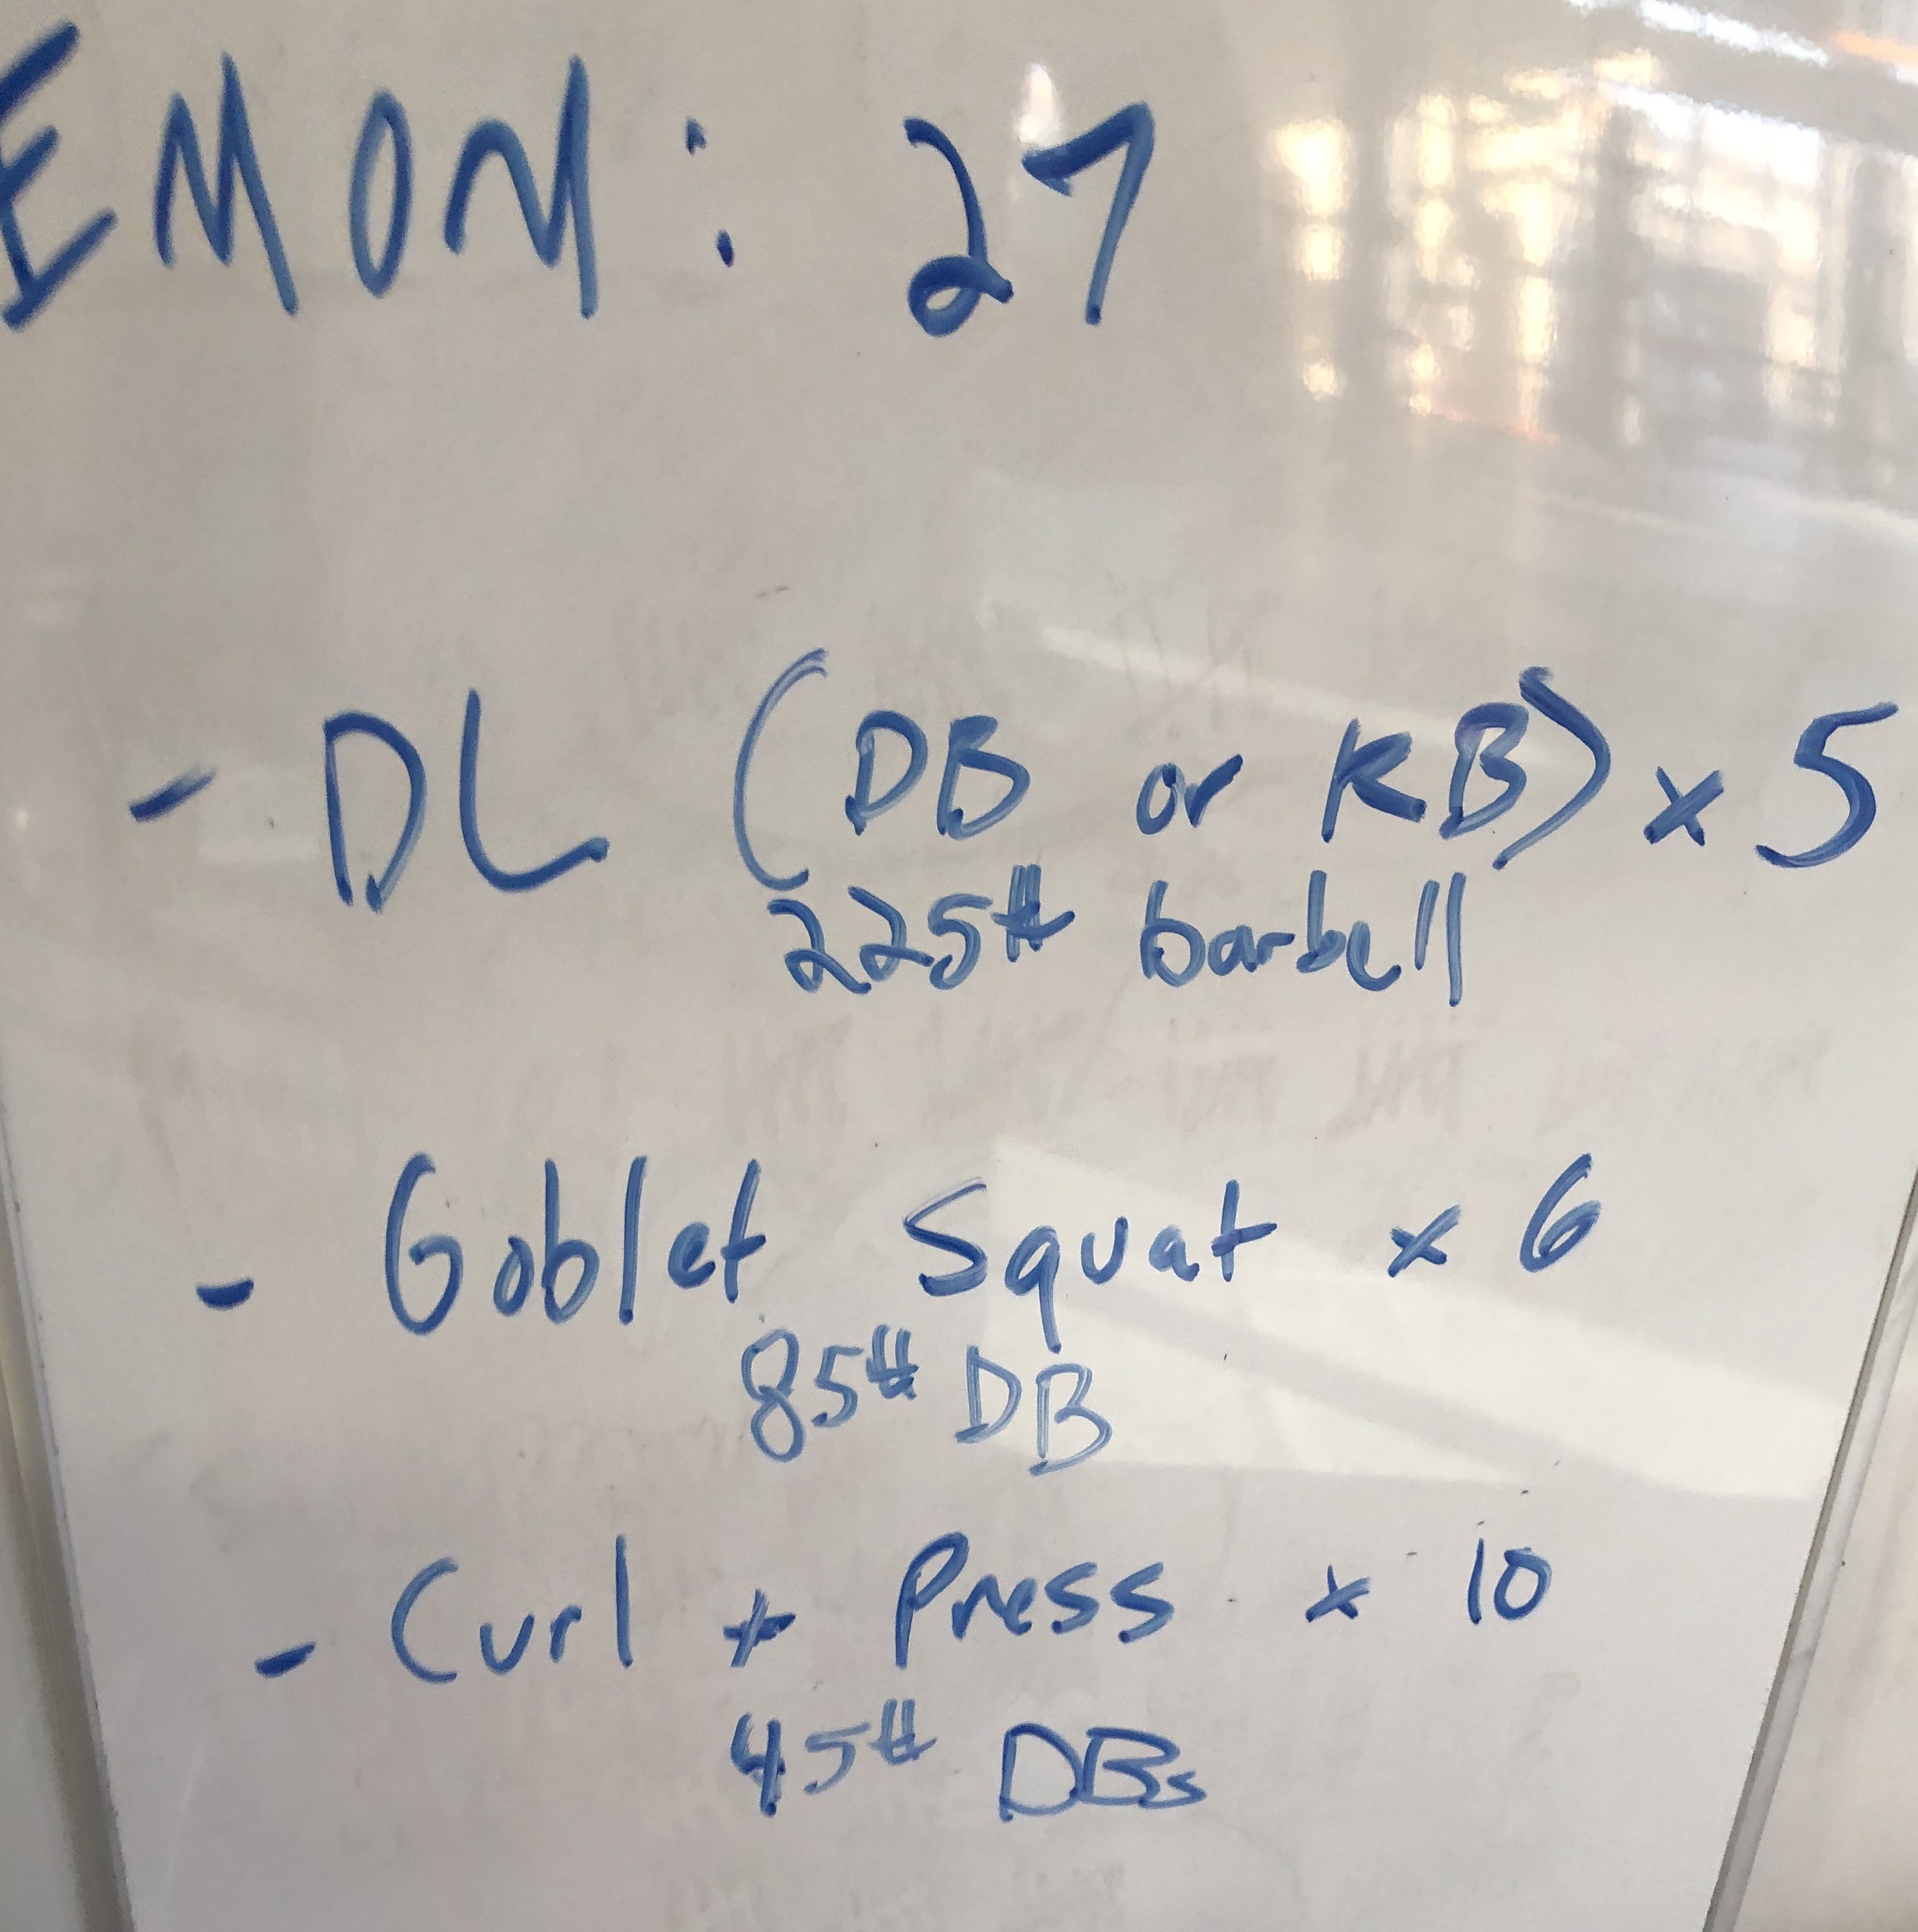 EMOM: 27
- DL (DB or KB) x 5
225# barbell
- Goblet Squat x 6
85# DB
- Curl + Press x 10
45# DBs